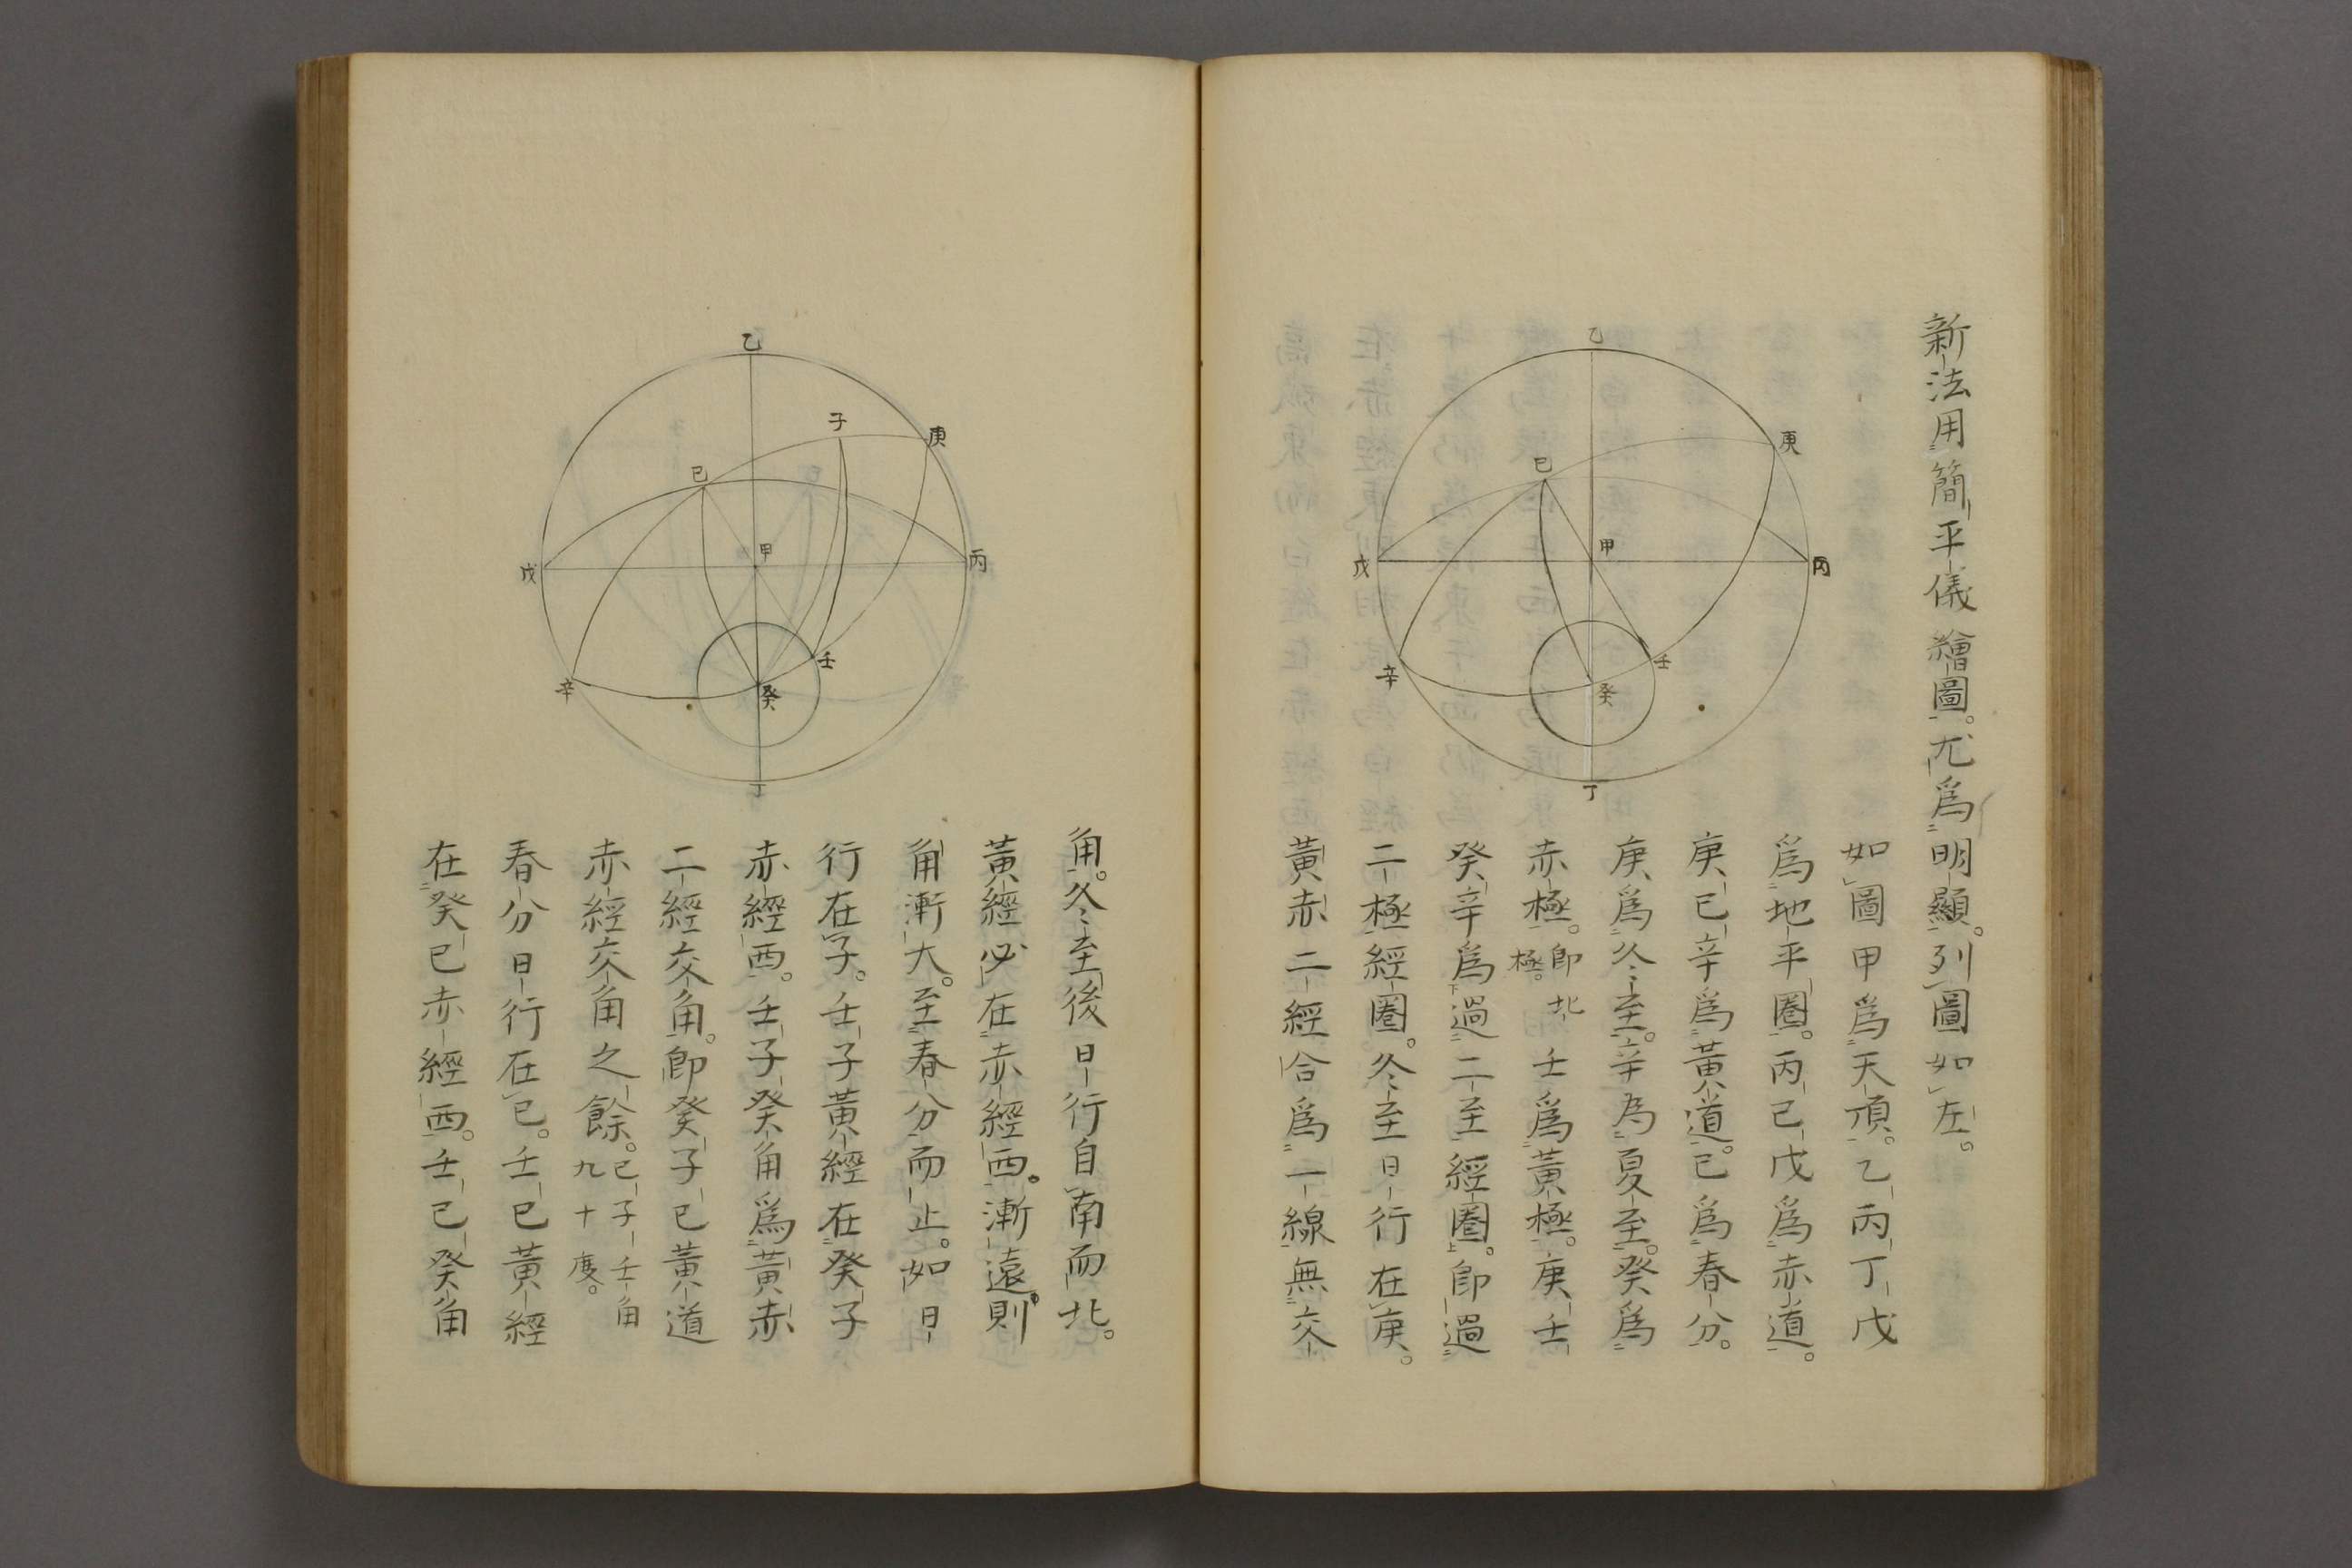 新法用簡平儀繪圖。尤爲明顯。列圖如左。
乙
庚
巳
甲
戊
丙
辛
壬
癸
丁
如圖甲爲天頂。乙丙丁戊
爲地平圈。丙己戊爲赤道。
庚巳辛爲黃道。巳爲春分。
庚爲久至。辛為夏至。癸爲
赤極。卽北極。壬爲黃極。庚壬
癸辛爲過二至經圈。卽過
二極經圈。冬至日行在庚。
黃赤二經合爲一線無交
乙
子
庚
巳
甲
戊
丙
辛
壬
癸
丁
角。冬至後日行自南而北。
黃經必在赤經西。漸遠則
角漸大。至春分而止。如日
行在子。壬子黃經在癸子
赤經西。壬子癸角爲黃赤
二經交角。卽癸子巳黃道
赤經交角之餘。巳子壬角九十度。
春分日行在巳。壬巳黃經
在癸巳赤經西。壬巳癸角